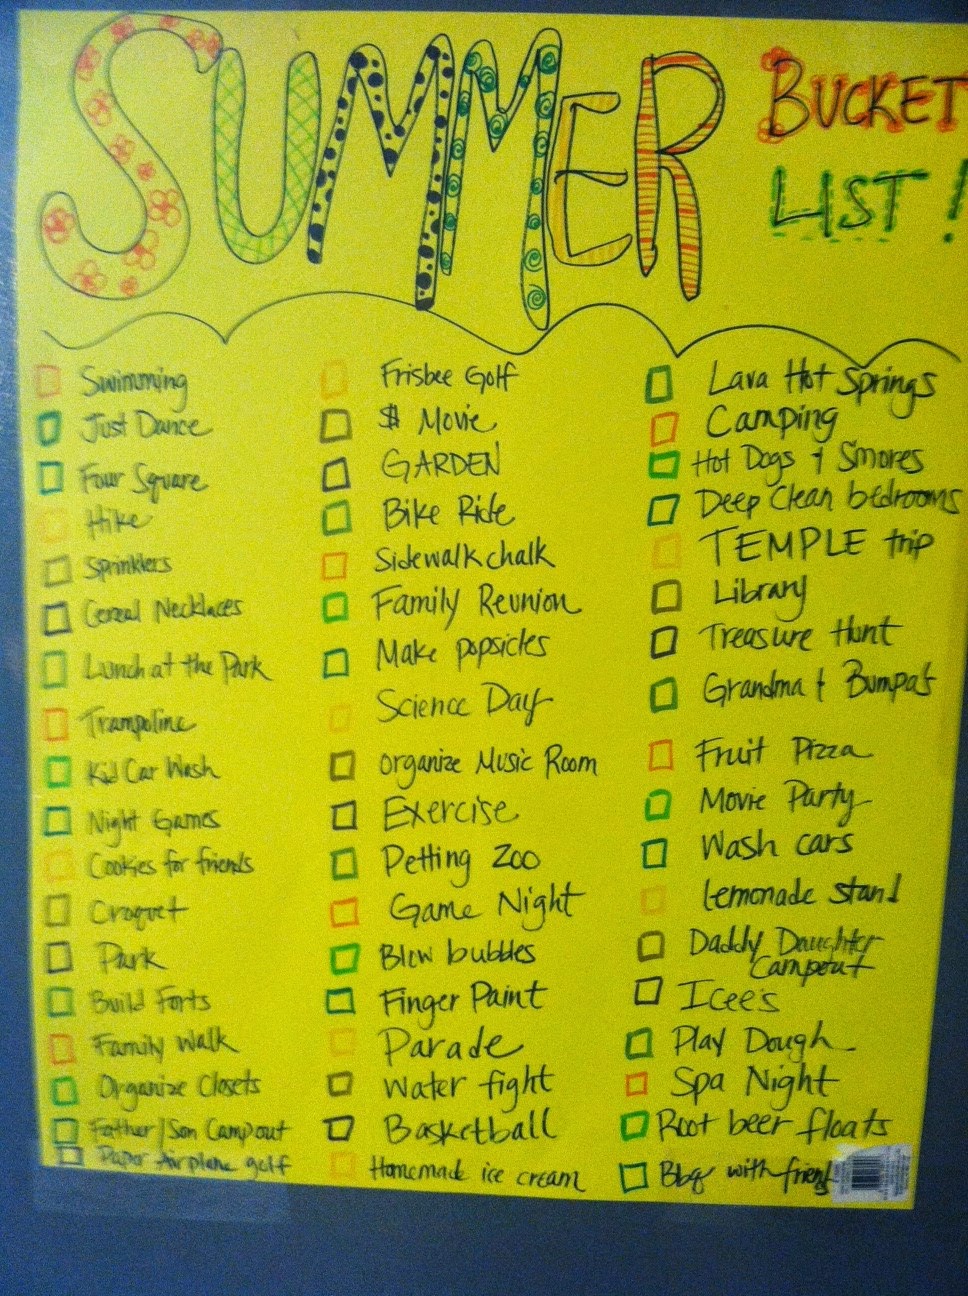 SUMMER BUCKET
LIST!
Swimming
Just Dance
Four Square
Hike
Sprinklers
Cereal Necklaces
Lunch at the Park
Trampoline
Kid Car Wash
Night Games
Cookies for friends
Croquet
Park
Build Forts
Family Walk
Organize Closets
Father/Son Campout
Paper Airplane golf
Frisbee Golf
$ Movie
GARDEN
Bike Ride
Sidewalk chalk
Family Reunion
Make popsicles
Science Day
organize Music Room
Exercise
Petting Zoo
Game Night
Blow bubbles
Finger Paint
Parade
Water fight
Basketball
Homemade ice cream
Lava Hot Springs
Camping
Hot Dogs & Smores
Deep Clean bedrooms
TEMPLE trip
Library
Treasure Hunt
Grandma & Bumpa's
Fruit Pizza
Movie Party
Wash cars
lemonade stand
Daddy Daughter
Campout
Icee's
Play Dough
Spa Night
Root beer floats
Bbq with friends